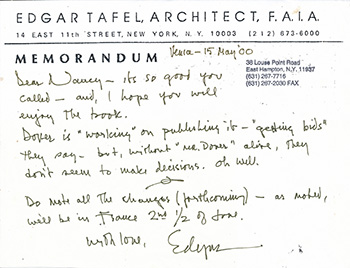 EDGAR TAFEL, ARCHITECT, F.A.I.A.
14 EAST 11th STREET, NEW YORK, N.Y. 10003 (212) 673-6000
15 May '00
MEMORANDUM
38 Louse Point Road
East Hampton, N.Y. 11937
(631) 267-7716
(631) 267-2030 FAX
Dear Nancy - its so good you
called - and, I hope you will
enjoy the book.
Dover is "working" on publishing it - "getting bids"
they say - but, without "Mr. Dover" alive, they
don't seem to make decisions. Oh well.
Do note all the changes (forthcoming) - as noted,
will be in France 2nd 1/2 of June.
with love,
Edgar